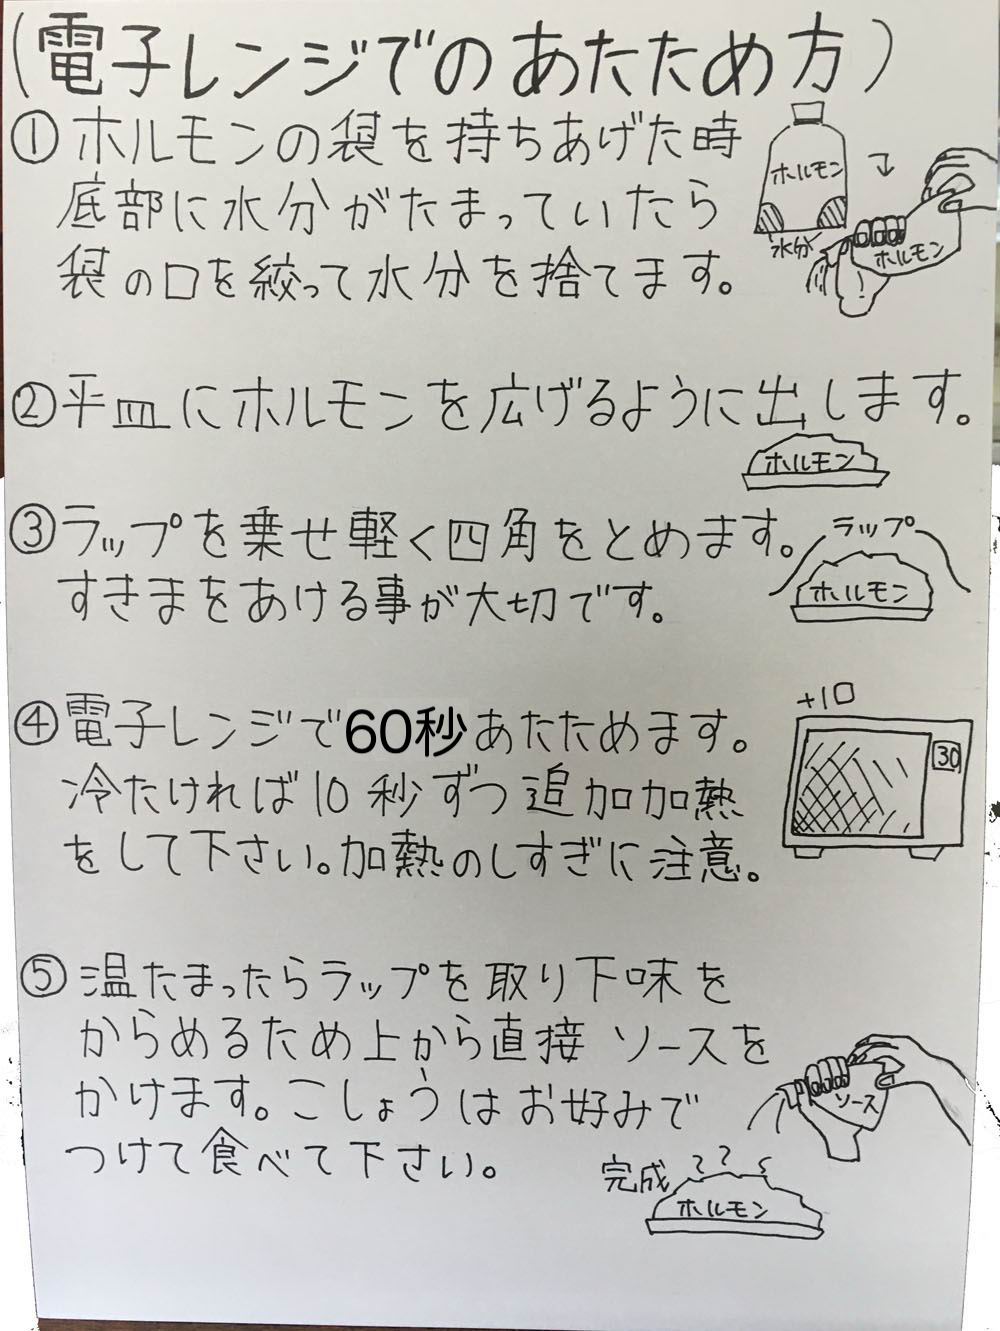 （電子レンジでのあたため方）
①ホルモンの袋を持ちあげた時
底部に水分がたまっていたら
袋の口を絞って水分を捨てます。
ホルモン
水分
ホルモン
②平皿にホルモンを広げるように出します。
ホルモン
③ラップを乗せ軽く四角をとめます。
すきまをあける事が大切です。
ラップ
ホルモン
④電子レンジで60秒あたためます。
冷たければ10秒ずつ追加加熱
をして下さい。加熱のしすぎに注意。
+10
30
⑤温たまったらラップを取り下味を
からめるため上から直接ソースを
かけます。こしょうはお好みで
つけて食べて下さい。
ソース
完成
ホルモン